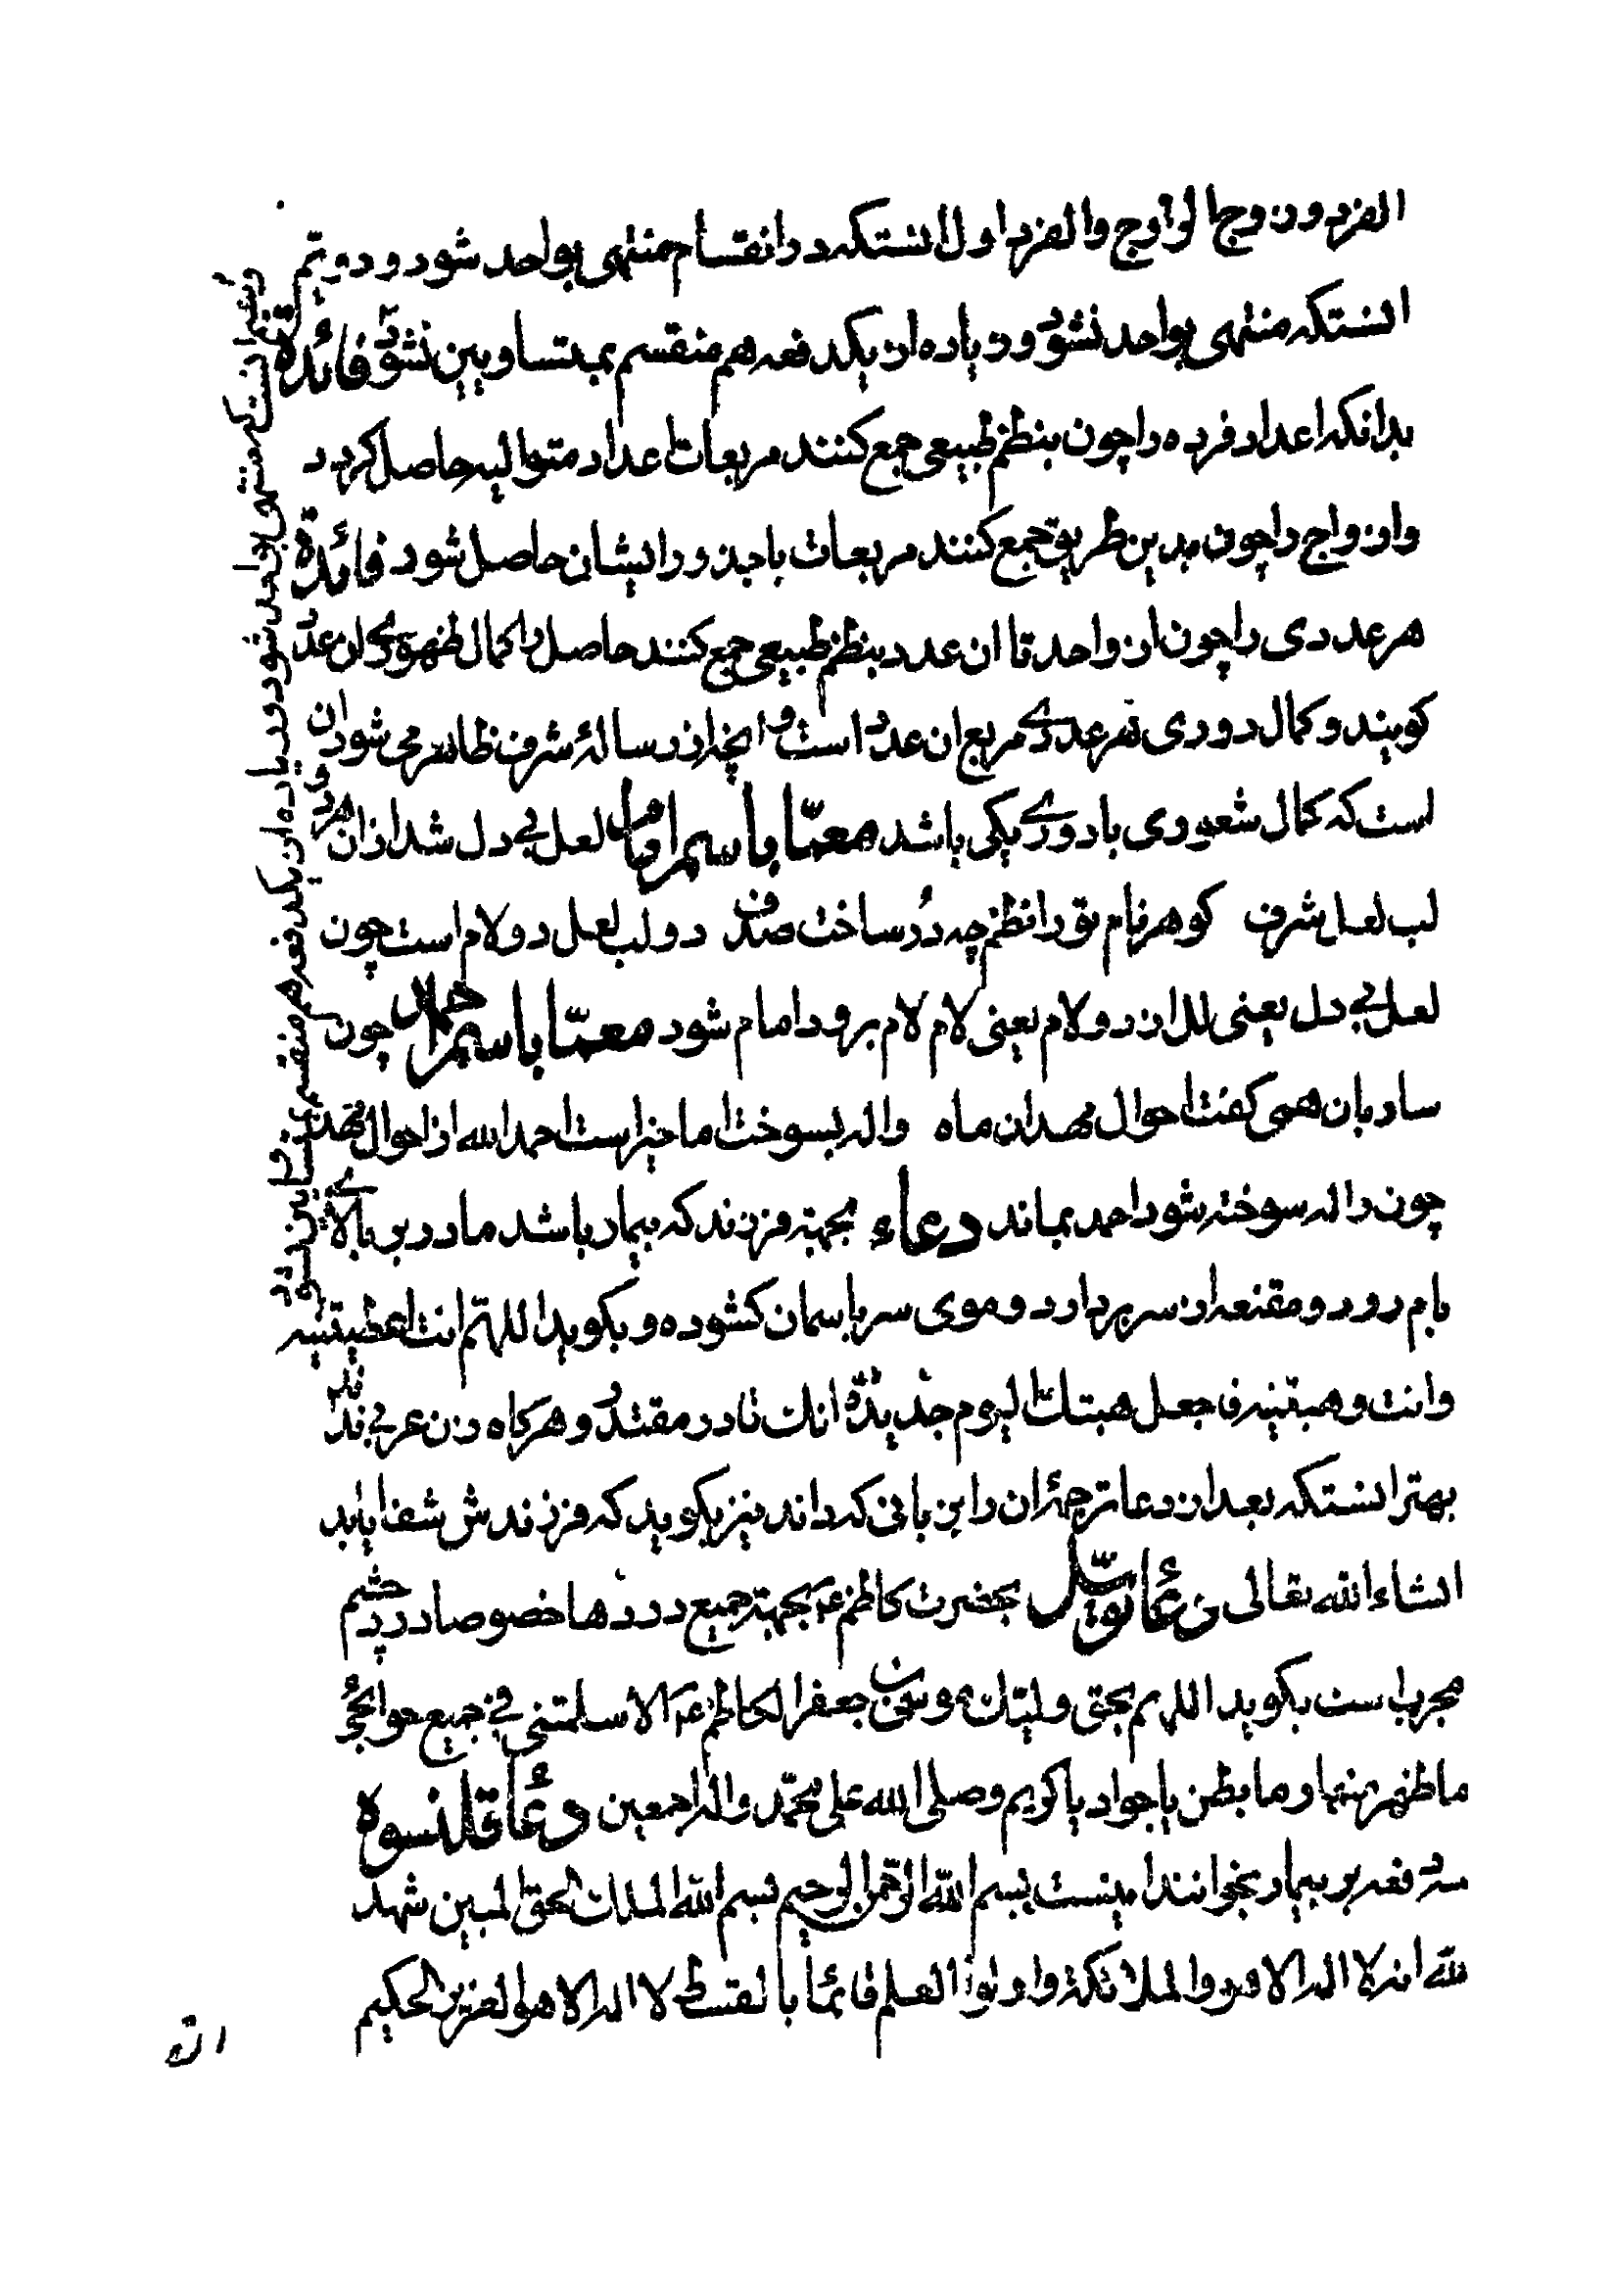 الفرد و زوج الزوج والفرد اول انستکه در انقسام منتهی بواحد شود و دویم
انستکه منتهی بواحد نشود و زیاده از یکدفعه هم منقسم بمتساویین نشود فائدة
بدانکه اعداد فرده را چون بنظم طبیعی جمع کنند مربعات اعداد متوالیه حاصل کردد
وازواج را چون بدین طریق جمع کنند مربعات باجذور ایشان حاصل شود فائدة
هر عددی را چون از واحد تا ان عدد بنظم طبیعی جمع کنند حاصل را کمال ظهوری ان عدد
کویند و کمال دوری هر عددی مربع ان عدد است و انچه از رساله شرف ظاهر می شود ان
است که کمال شعوری با دوری یکی باشد معمّا باسم امام لعل بی دل شد از ان هر دو
لب لعل شرف کوهر نام تو را نظم چه در ساخت صدف دو لب لعل دو لام است چون
لعل بی دل یعنی لل از دو لام یعنی لام لام برود امام شود معمّا باسم احمد چون
ساربان همی کفت احوال مهد ان ماه واله بسوخت اما خیر است احمد الله از احوال مهد
چون را له سوخته شود احمد بماند دعاء بجهة فرزند که بیمار باشد مادر بر بالای
بام رود و مقنعه از سر بردارد و موی سر باسمان کشوده و بکوید اللهم انت اعطیتنیه
وانت وهبتنیه فاجعل هبتک الیوم جدیدة انک قادر مقتدر و هر کاه زن عربی نداند
بهتر انستکه بعد از دعا ترجمه ان را بزبانی که داند نیز بکوید که فرزندش شفا یابد
انشاء الله تعالی دعا توسّل بحضرت کاظم ع بجهة جمیع دردها خصوصا درد چشم
مجرب است بکوید اللهم بحق ولیک موسی بن جعفر الکاظم ع الا سلمتنی فی جمیع جوارحی
ما ظهر منها و ما بطن یا جواد یا کریم وصلی الله علی محمّد واله اجمعین دعا قلنسوه
سه دفعه بر بیمار بخوانند اینست بسم الله الرحمن الرحیم بسم الله الملک الحق المبین شهد
الله انه لا اله الا هو والملائکة واولوا العلم قائما بالقسط لا اله الا هو العزیز الحکیم
ان
انستکه منتهی بواحد شود و زیاده از یکدفعه هم منقسم بمتساویین نشود